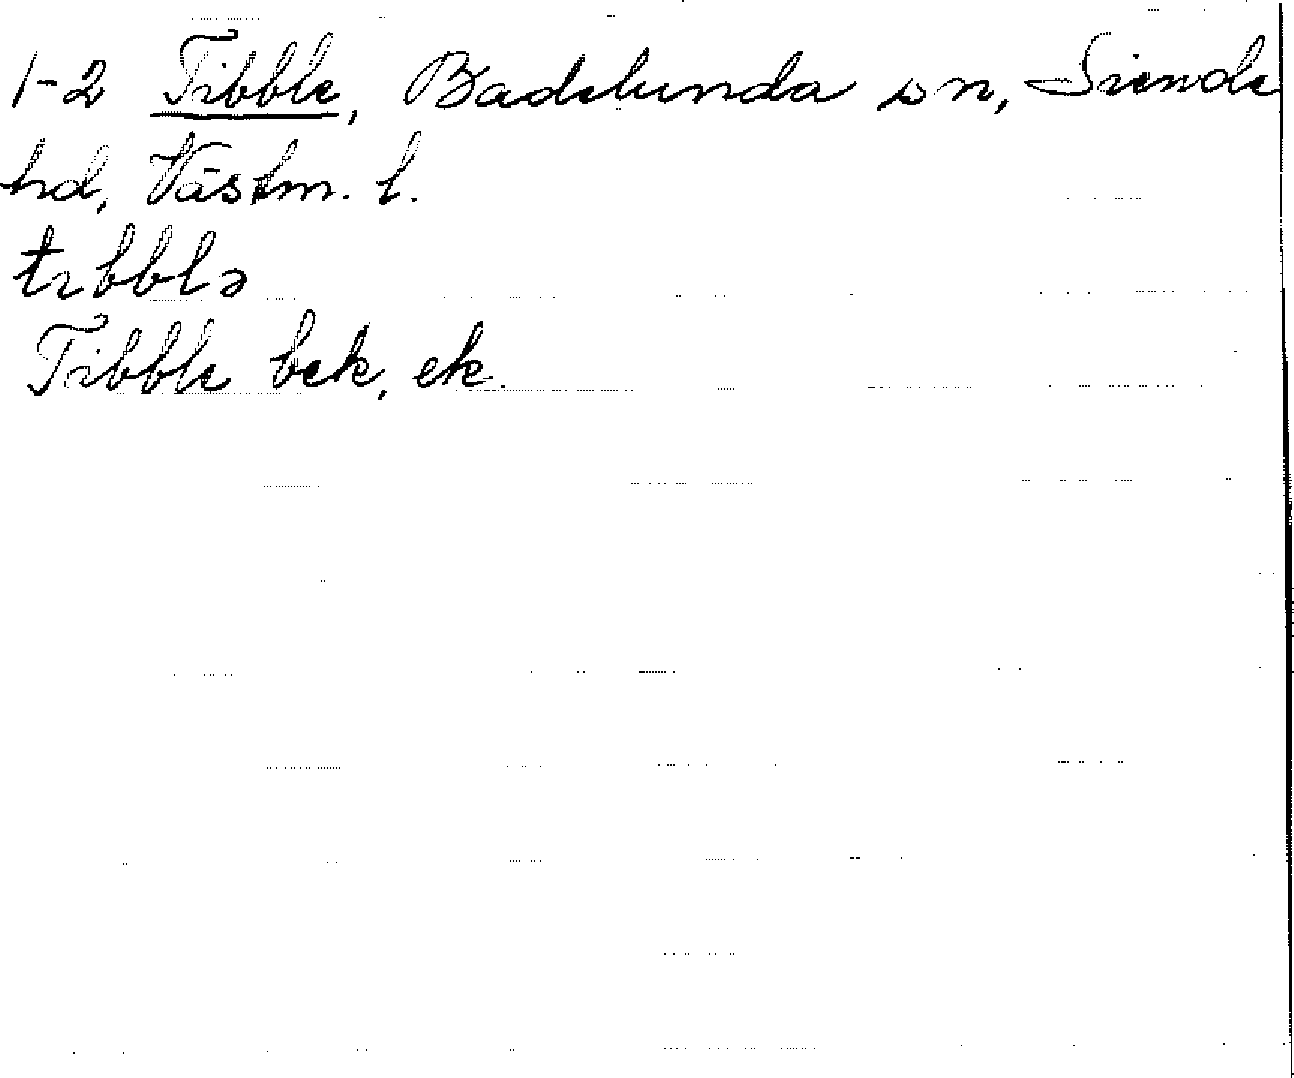 1-2 Tibble, Badelunda sn, Siende
hd, Västm. l.
tıbblə
Tibble bek, ek.